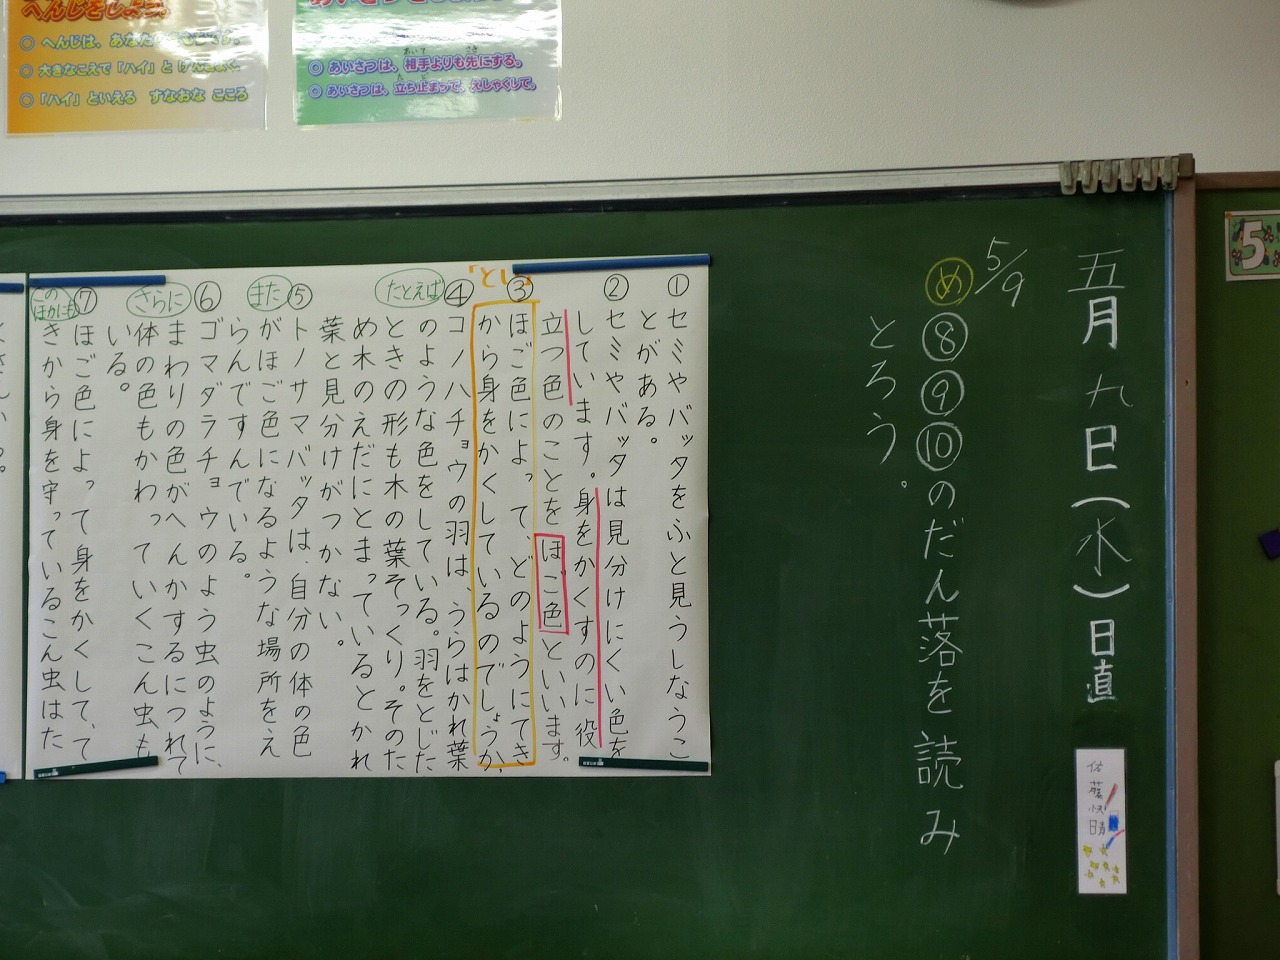 へんじをしよう
◎ へんじは、あなた
◎ 大きなこえで「ハイ」と げんきよく。
◎ 「ハイ」といえる すなおな こころ
◎ あいさつは、相手よりも先にする。
◎ あいさつは、立ち止まって、えしゃくして。
5
五月九日(水)日直
佐藤快晴
5/9
め ⑧⑨⑩のだん落を読み
とろう。
①セミやバッタをふと見うしなうこ
とがある。
②セミやバッタは見分けにくい色を
しています。身をかくすのに役
立つ色のことをほご色といいます。
「とい」
③ほご色によって、どのようにてき
から身をかくしているのでしょうか。
④コノハチョウの羽は、うらはかれ葉
たとえば
のような色をしている。羽をとじた
ときの形も木の葉そっくり。そのた
め木のえだにとまっているとかれ
葉と見分けがつかない。
⑤トノサマバッタは、自分の体の色
また
がほご色になるような場所をえ
らんですんでいる。
⑥ゴマダラチョウのよう虫のように、
まわりの色がへんかするにつれて
さらに
体の色もかわっていくこん虫も
いる。
⑦ほご色によって身をかくして、て
このほかにも
きから身を守っているこん虫はた
くさんいる。